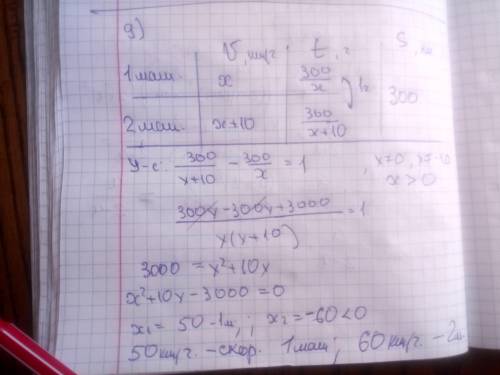 9)
V, км/ч t, ч S, км
1 маш. x 300/x 1ч 300
2 маш. x+10 300/(x+10)
У-е: 300/(x+10) - 300/x = 1 , x≠0, x≠-10
x>0
(300x - 300x + 3000)/(x(x+10)) = 1
3000 = x²+10x
x²+10x-3000=0
x₁ = 50 - 1м, ; x₂ = -60<0
50 км/ч. - скор. 1 маш; 60 км/ч. - 2м.